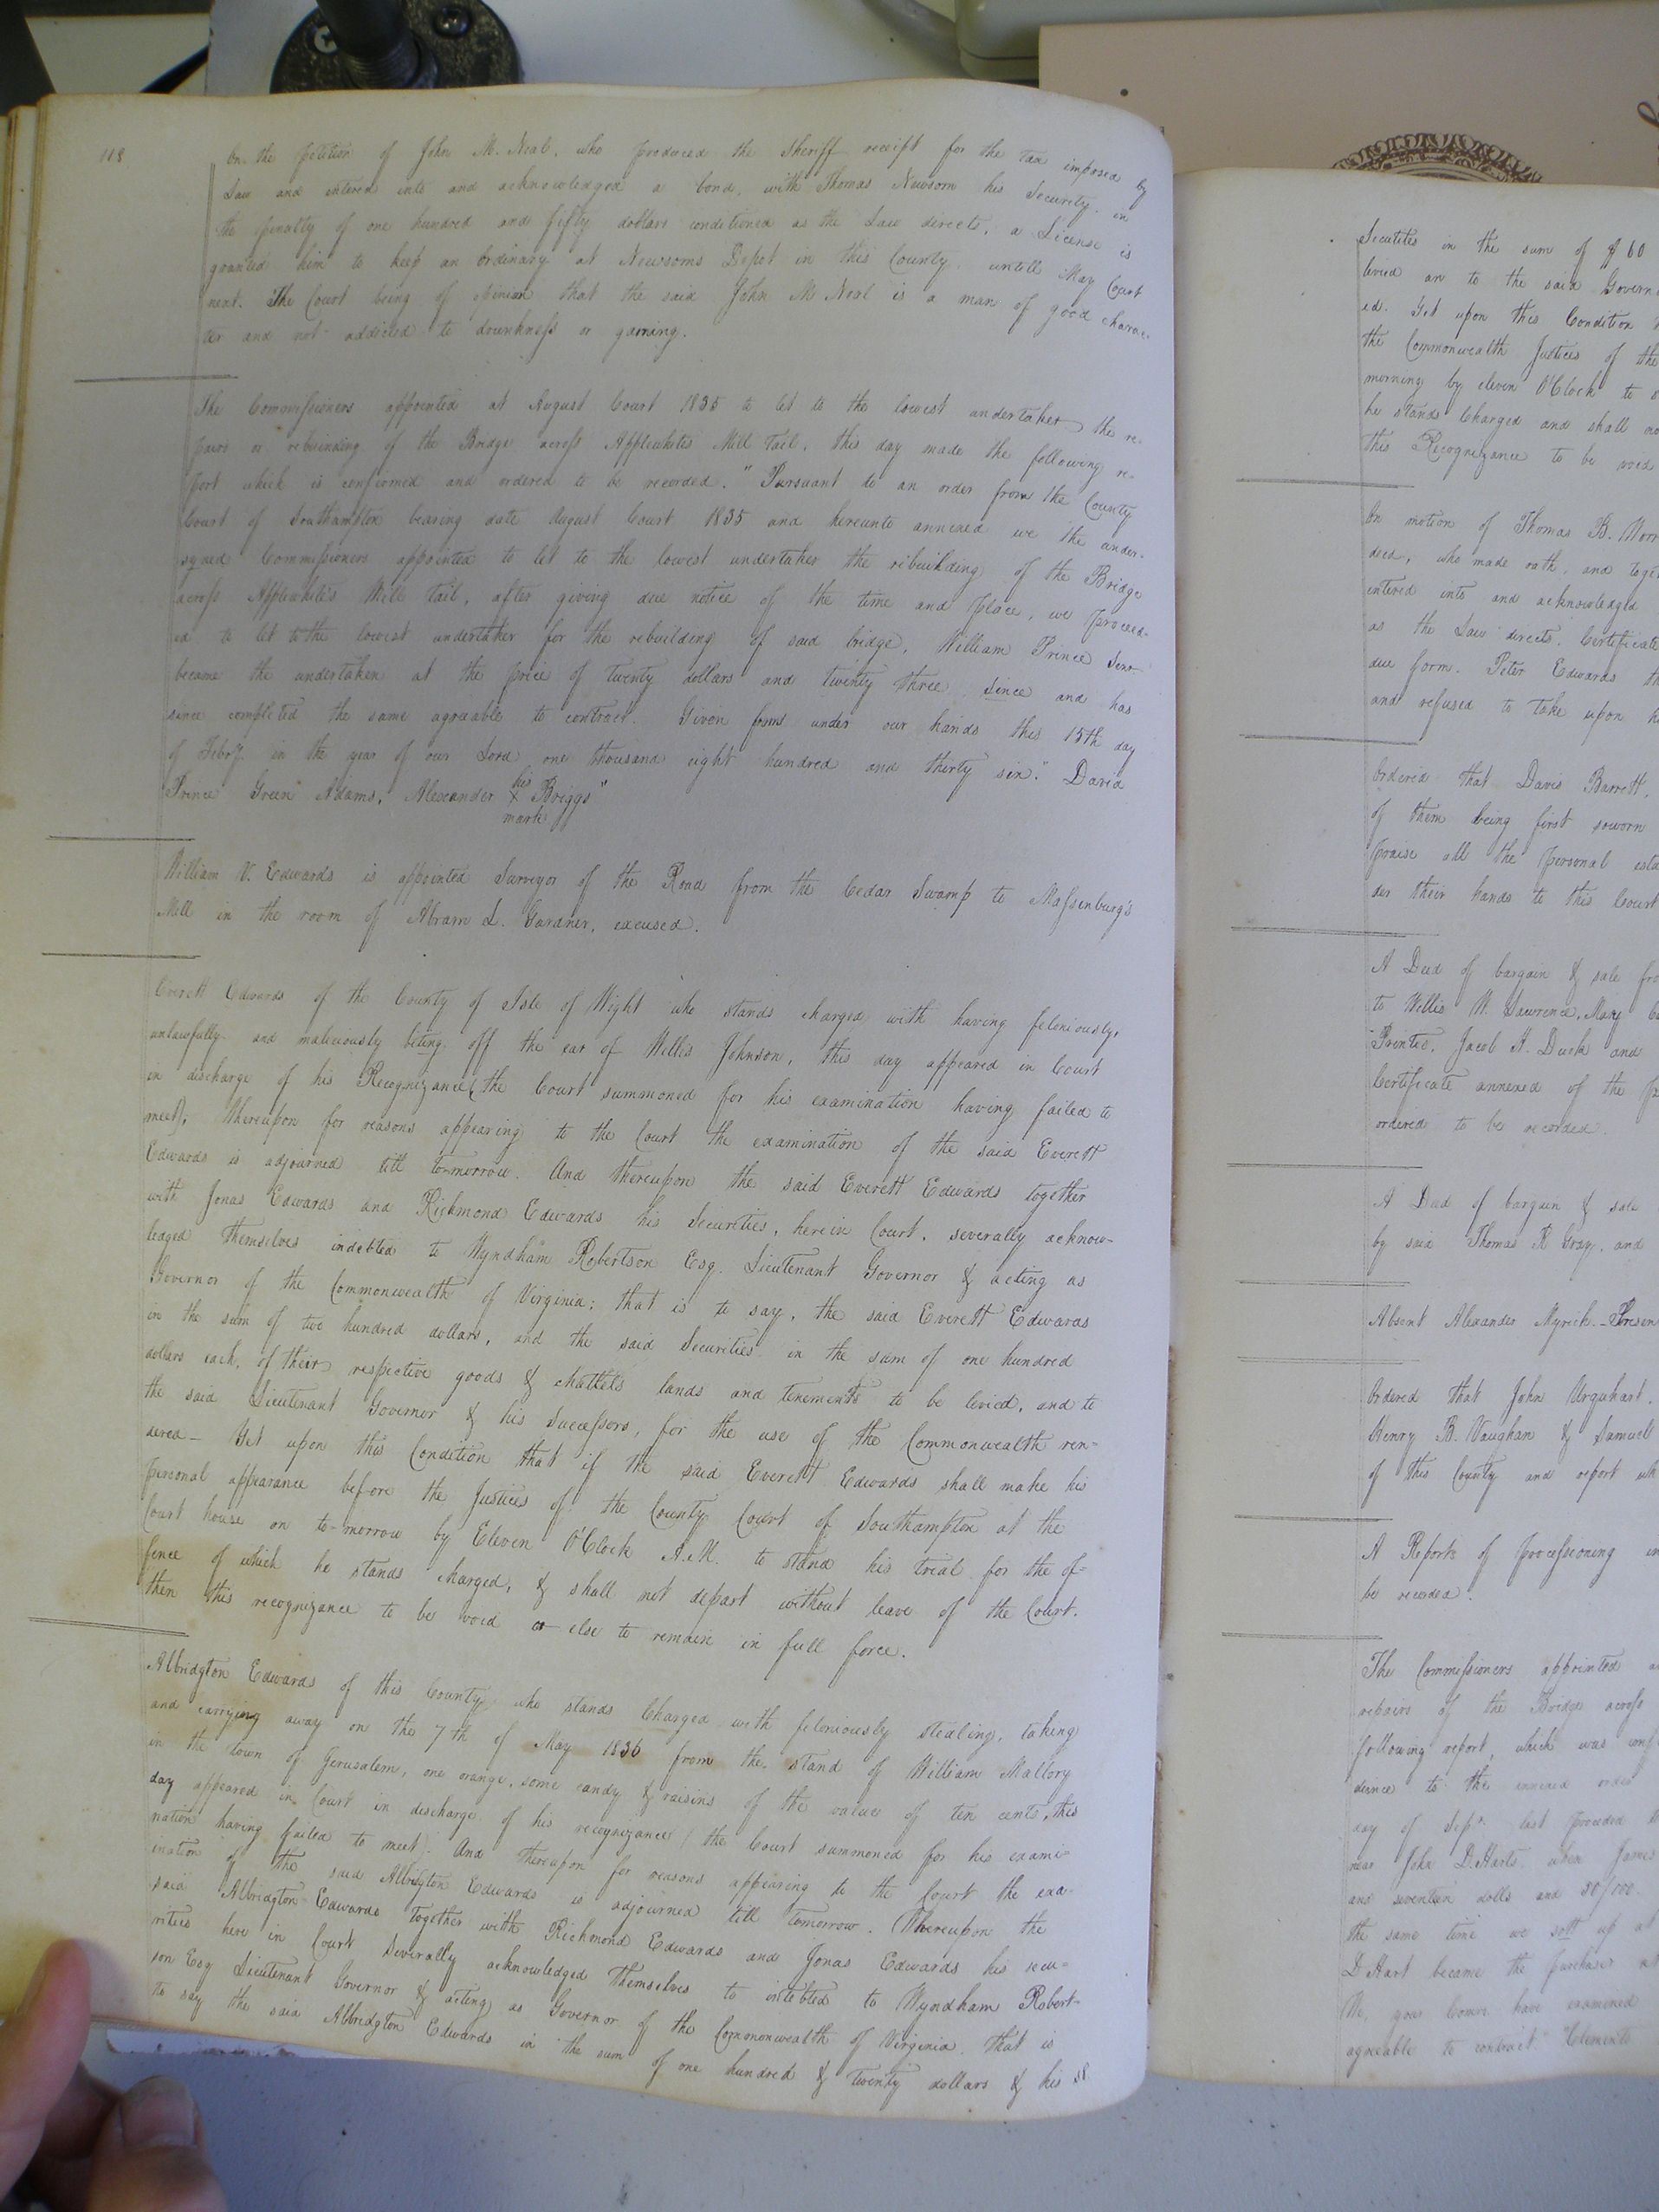 118
On the petition of John M. Neal, who produced the Sheriff receipt for the tax imposed by
Law and entered into and acknowledged a bond, with Thomas Newsom his Security, in
the penalty of one hundred and fifty dollars conditioned as the Law directs, a License is
granted him to keep an ordinary at Newsoms Depot in this County, untill May Court
next. The Court being of opinion that the said John M Neal is a man of good charac-
ter and not addicted to drunkness or gaming.
The Commissioners appointed at August Court 1835 to let to the lowest undertaker the re-
pairs or rebuinding of the Bridge across Applewhites Mill Tail, this day made the following re-
port which is confirmed and ordered to be recorded. "Pursuant to an order from the County
Court of Southampton bearing date August Court 1835 and hereunto annexed we the under-
signed Commissioners appointed to let to the lowest undertaker the rebuilding of the Bridge
across Applewhite's Mill tail, after giving due notice of the time and place, we proceed-
ed to let to the lowest undertaker for the rebuilding of said bridge, William Prince Senr
became the undertaker at the price of twenty dollars and twenty three Since and has
since completed the same agreable to contract. Given from under our hands this 15th day
of Feby. in the year of our Lord one thousand eight hundred and thirty six." David
Prince Green Adams, Alexander his X mark Briggs"
William V. Edwards is appointed Surveyor of the Road from the Cedar Swamp to Massenburg's
Mill in the room of Abram L. Gardner, excused.
Everett Edwards of the County of Isle of Wight who stands charged with having feloniously,
unlawfully and maliciously biting off the ear of Willis Johnson, this day appeared in Court
in discharge of his Recognizance (the Court summoned for his examination having failed to
meet), Whereupon for reasons appearing to the Court the examination of the said Everett
Edwards is adjourned till to-morrow. And thereupon the said Everett Edwards together
with Jonas Edwards and Richmond Edwards his Securities, here in Court, severally acknow-
ledged themselves indebted to Wyndham Robertson Esq. Lieutenant Governor & acting as
Governor of the Commonwealth of Virginia; that is to say, the said Everett Edwards
in the sum of two hundred dollars, and the said Securities in the sum of one hundred
dollars each, of their respective goods & chattels lands and tenements to be levied, and to
the said Lieutenant Governor & his Successors, for the use of the Commonwealth ren-
dered - Yet upon this Condition that if the said Everett Edwards shall make his
personal appearance before the Justices of the County Court of Southampton at the
Court house on to-morrow by Eleven O'Clock A.M. to stand his trial for the of-
fence of which he stands charged, & shall not depart without leave of the Court.
then this recognizance to be void or else to remain in full force.
Albridgton Edwards of this County who stands Charged with feloniously stealing, taking
and carrying away on the 7th of May 1836 from the stand of William Mallory
in the town of Jerusalem, one orange, some candy & raisins of the value of ten cents, this
day appeared in Court in discharge of his recognizance (the Court summoned for his exami-
nation having failed to meet). And thereupon for reasons appearing to the Court the exa-
ination of the said Albridgton Edwards is adjourned till tomorrow. Whereupon the
said Albridgton Edwards together with Richmond Edwards and Jonas Edwards his secu-
rities here in Court Severally acknowledged themselves to intebted to Wyndham Robert-
son Esq Lieutenant Governor & acting as Governor of the Commonwealth of Virginia. that is
to say the said Albridgton Edwards in the sum of one hundred & twenty dollars & his
Secutites in the sum of $60
levied an to the said Govern
ed. Yet upon this Condition
the Commonwealth Justices of the
morning by eleven O'Clock to
he stands Charged and shall
this Recognizance to be void
On motion of Thomas B.
who made oath, and toge
entered into and acknowledged
as the Law directs. Certificate
due form. Peter Edwards th
and refused to take upon h
Ordered that Davis Barrett,
of them being first sworn
praise all the personal esta
der their hands to this Court
A Deed of bargain & sale fro
to Willis W. Lawrence, Mary
Jacob H. Duck and
Certificate annexed of the
ordered to be recorded.
A Deed of bargain & sale
by said Thomas R Gray, and
Absent Alexander Myrick. - Presen
Ordered that John Urquhart,
Henry B. Vaughan & Samuel
of this County and report wh
A Report of processioning
be recorded.
The Commissioners appointed
repairs of the Bridge across
following report, which was conf
dience to the annexed order
day of Sepr. last proceeded
near John D. Harts, when James
and seventeen dolls and 50/100.
the same time we sott up at
D Hart became the purchaser at
We, your Comrs. have examined
agreeable to contract "Clements